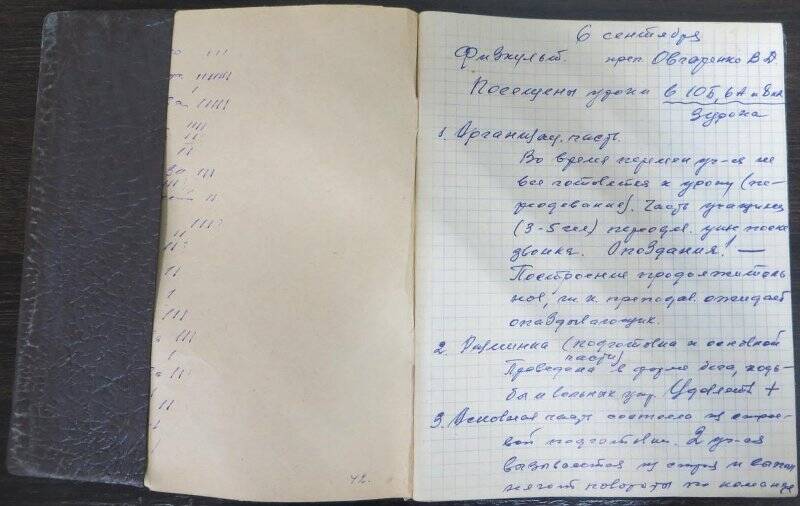 6 сентября
Физкульт. преп. Овчаренко В Д.
Посещены уроки в 10Б, 6А и 8 кл
3 урока
1. Организац. часть.
Во время перемен уч-ся не
все готовятся к уроку (пе-
реодевание). Часть учащихся
(3-5 чел) переодев. уже после
звонка. Опоздания! —
Построение продолжитель
ное, т. к. преподав. ожидает
опаздывающих.
2. Разминка (подготовка к основной
части)
Проведена в форме бега, ходь-
бы и вольных упр. Удовлетв +
3. Основная часть состояла из строе-
вой подготовки. 2 уч-ся
вызываются из строя и выпол
няют повороты по команде
42.